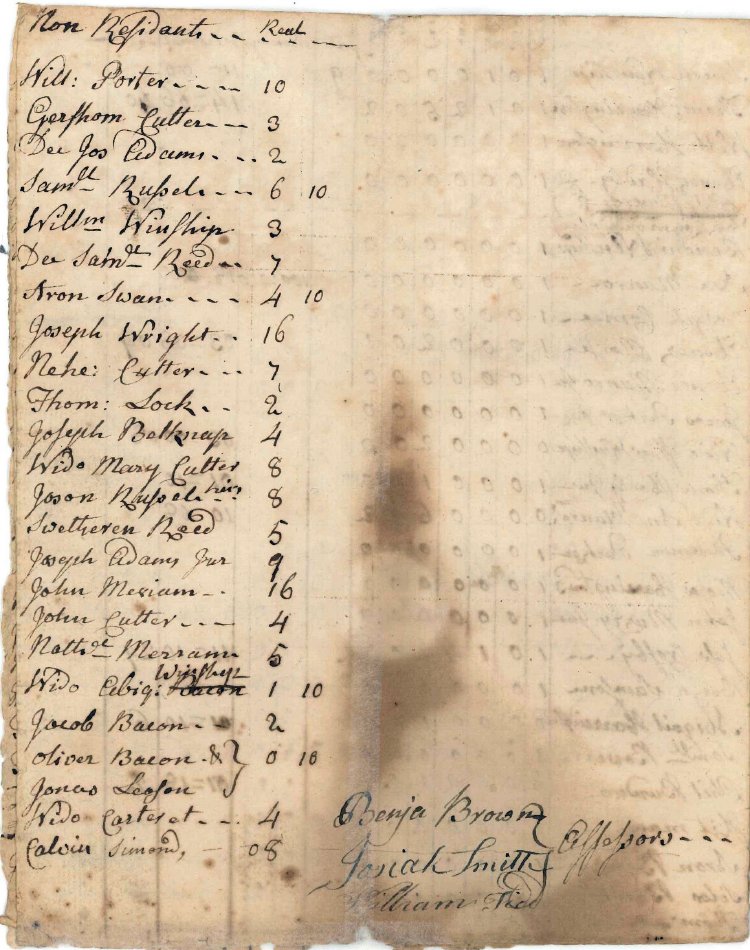 Non Residants - - Real - -
Will: Porter - - - - 10
Gershom Cutter - - - 3
Dec Jos Adams - - - 2
Samll Russel - - - 6 10
Willm Winship 3
Dec Samll Reed - - 7
Aron Swan - - - - 4 10
Joseph Wright - - 16
Nehe: Cutter - - - 7
Thom: Lock - - 2
Joseph Belknap 4
Wido Mary Cutter 8
Joson Russel hirs 8
Swetheren Reed 5
Joseph Adams Jur 9
John Meriam - - 16
John Cutter - - - 4
Nathll Merriam 5
Wido Abig: Bacon Winship 1 10
Jacob Bacon - - 2
Oliver Bacon - & } 0 10
Jonas Leoson
Wido Carteret - - - 4
Calvin Simond, - 0 8
Benja Brown
Josiah Smith } Assessors - - -
William